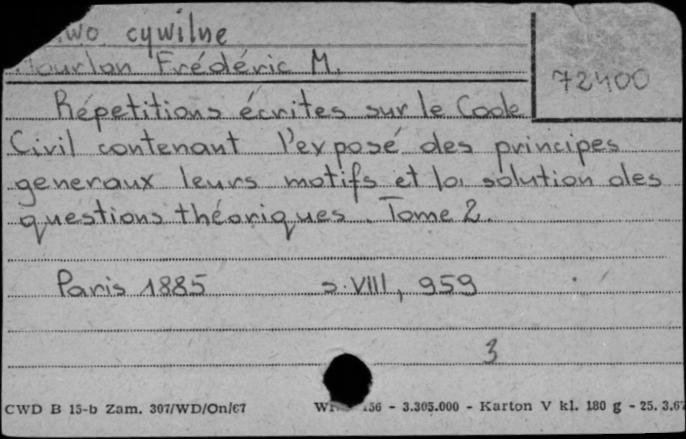 wo cywilne
ourlon Frédéric M.
72400
Répetitions écrites sur le Code
Civil contenant l'exposé des principes
generaux leurs motifs et la solution des
questions théoriques. Tome 2.
Paris 1885 s. VIII, 959
3
CWD B 15-b Zam. 307/WD/On/67 56 - 3.305.000 - Karton V kl. 180 g - 25. 3.67